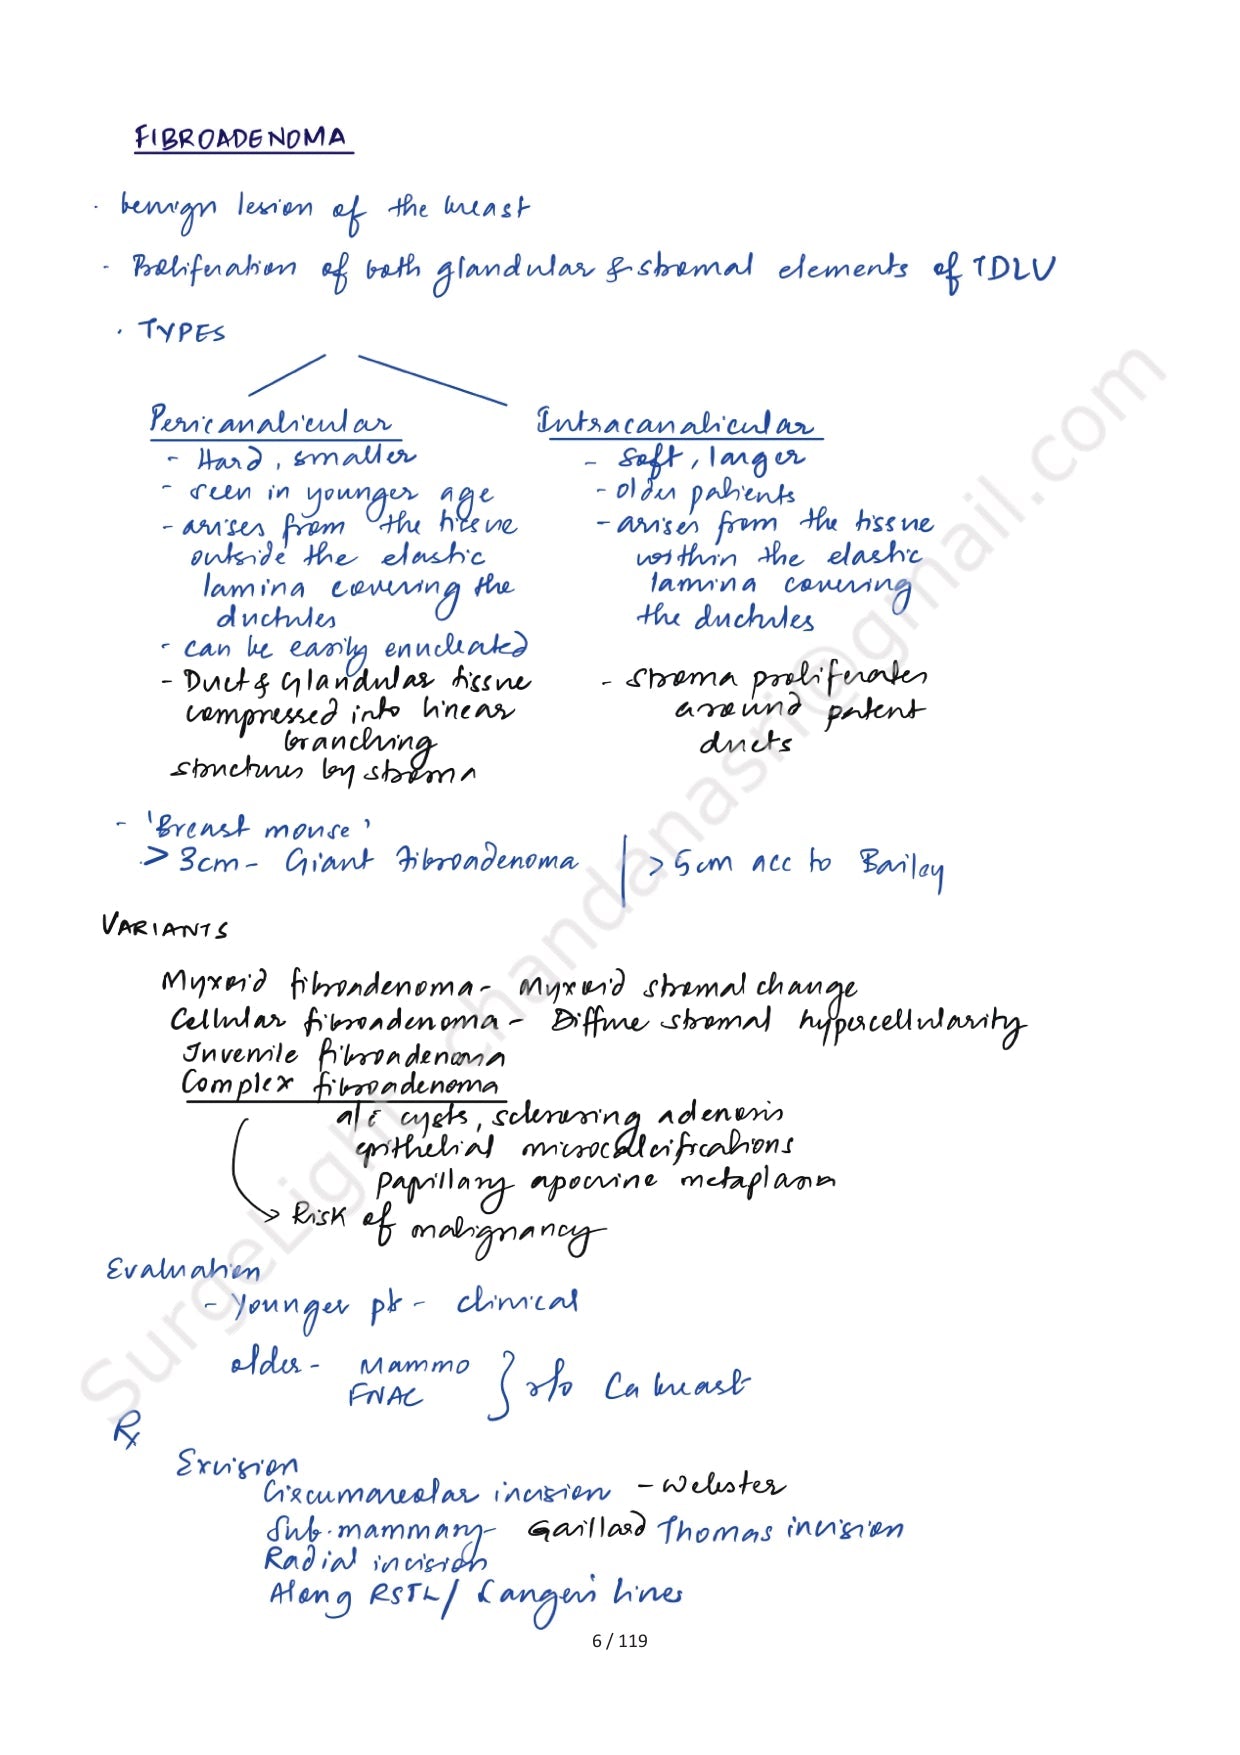 FIBROADENOMA
. benign lesion of the breast
- Proliferation of both glandular & stromal elements of TDLU
. TYPES
Pericanalicular
- Hard, smaller
- seen in younger age
- arises from the tissue
outside the elastic
lamina covering the
ductules
- can be easily enucleated
- Duct & Glandular tissue
compressed into linear
branching
structures by stroma
Intracanalicular
- Soft, larger
- older patients
- arises from the tissue
within the elastic
lamina covering
the ductules
- stroma proliferates
around patent
ducts
- 'Breast mouse'
> 3cm - Giant Fibroadenoma | > 5cm acc to Bailey
VARIANTS
Myxoid fibroadenoma - Myxoid stromal change
Cellular fibroadenoma - Diffuse stromal hypercellularity
Juvenile fibroadenoma
Complex fibroadenoma
a/c cysts, sclerosing adenosis
epithelial microcalcifications
papillary apocrine metaplasia
→ Risk of malignancy
Evaluation
- Younger pt - clinical
older - Mammo
FNAC } r/o Ca breast
Rx
Excision
Circumareolar incision - Webster
Sub-mammary - Gaillard Thomas incision
Radial incision
Along RSTL / Langer's lines
6 / 119
SurgeLight chandanasri@gmail.com